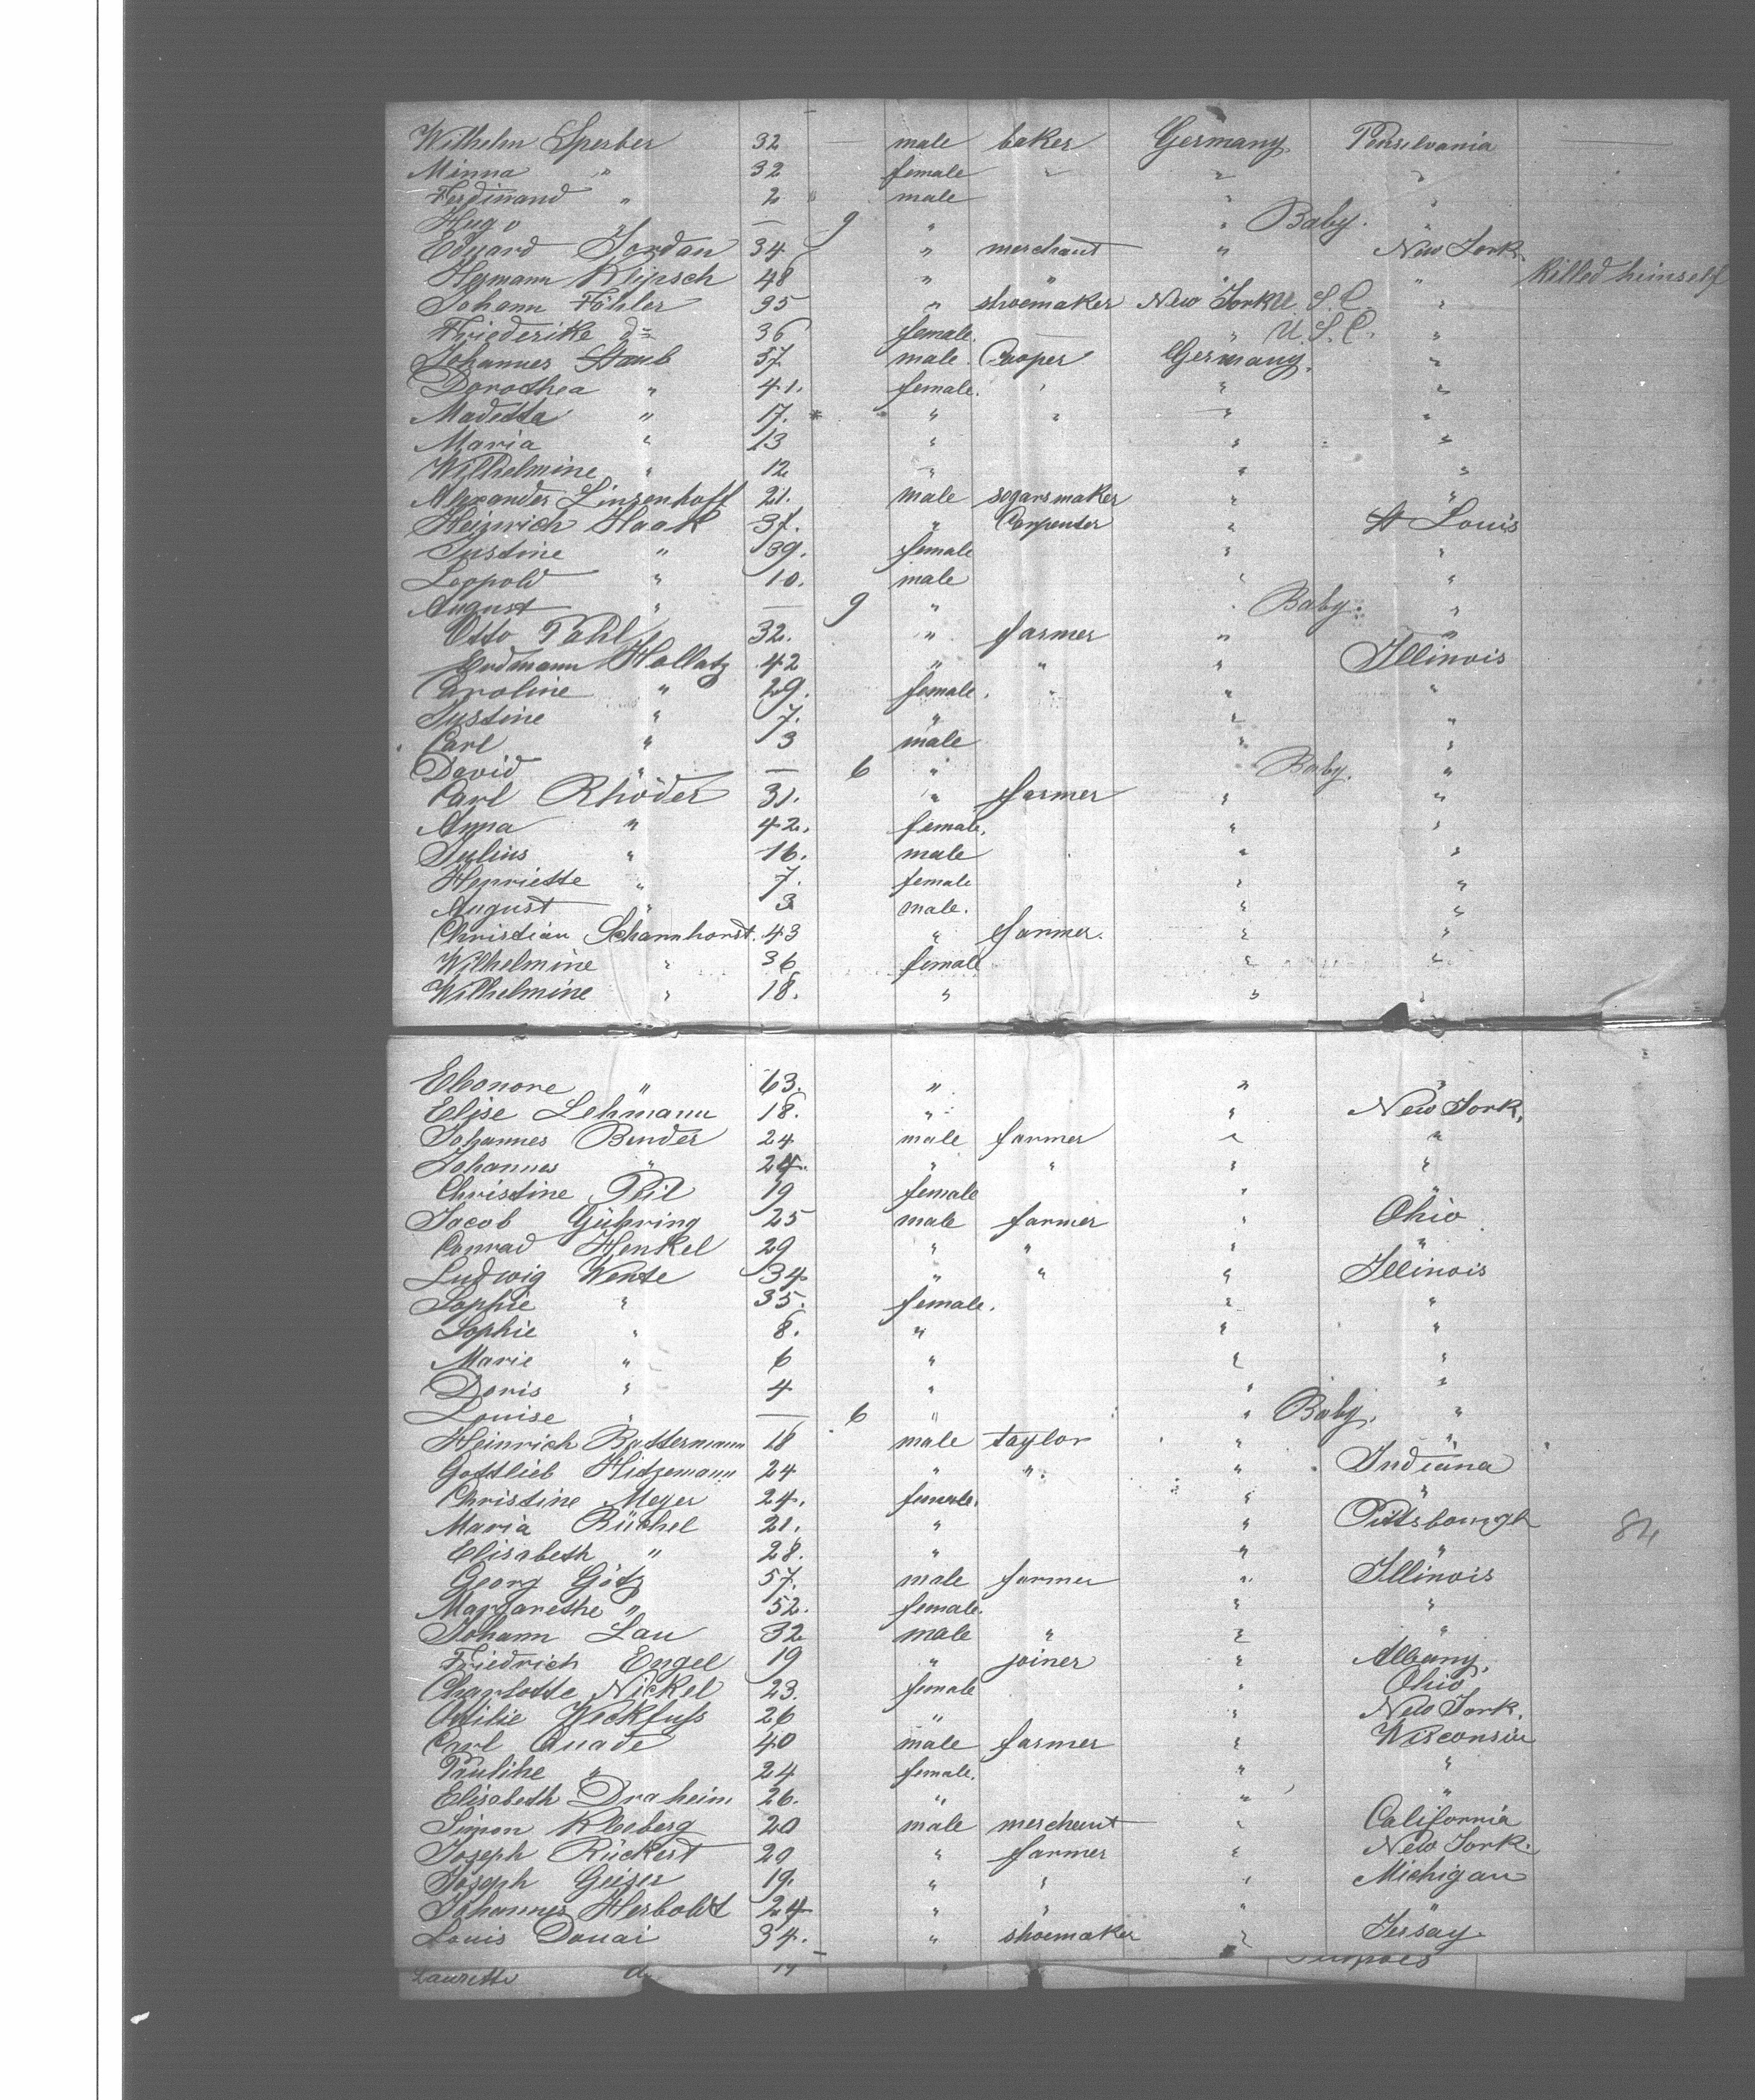 Wilhelm Sperber 32 — male baker Germany Pensilvania —
Minna " 32 female " " "
Ferdinand " 2 male " "
Hugo " — 9 " " Baby. "
Eduard Jordan 34 " merchant " New York.
Hermann Klipsch 48 " " " " Killed heinself
Johann Föhler 35 " shoemaker New York U. S. C. "
Friederike do 36 female. — " U. S. C. "
Johannes Staub 57 male. Cooper Germany. "
Dorothea " 41. female. " " "
Madetta " 17. * " " " "
Maria " 13 " " "
Wilhelmine " 12 " " "
Alexander Linsenhoff 21. male segarsmaker " "
Heinrich Haak 37. " Carpenter " St Louis
Justine " 39. female " "
Leopold " 10. male " "
August " — 9 " " Baby. "
Otto Pahl 32. " farmer " "
Erdmann Hollatz 42 " " " Illinois
Caroline " 29. female. " " "
Justine " 7. " " "
Carl " 3 male " "
David " — 6 " Baby. "
Carl Rhöder 31. " farmer " "
Anna " 42. female. " "
Julius " 16. male " "
Henriette " 7. female " "
August " 3 male. " "
Christian Scharnhorst. 43 " farmer. " "
Wilhelmine " 36 female " "
Wilhelmine " 18. " " "
Eleonore " 63. " " "
Elise Lehmann 18. " " New York,
Johannes Binder 24 male farmer " "
Johannes " 24. " " " "
Christine Pfeil 19 female " "
Jacob Gühring 25 male farmer " Ohio
Conrad Henkel 29 " " " "
Ludwig Wente 34 " " " Illinois
Sophie " 35. female. " "
Sophie " 8. " " "
Marie " 6 " " "
Doris " 4 " " "
Louise " — 6 " " Baby. "
Heinrich Battermann 18 male taylor " "
Gottlieb Hitzemann 24 " " " Indiana
Christine Meyer 24. female. " "
Maria Büchel 21. " " Pittsbourgh 84
Elisabeth " 28. " " "
Georg Götz 57. male farmer " Illinois
Margarethe " 52. female. " "
Johann Lau 32 male " " "
Friedrich Engel 19 " joiner " Albany,
Charlotte Nickel 23. female " Ohio
Ottilie Weckfuss 26 " " New York.
Carl Quade 40 male farmer " Wisconsin
Pauline " 24 female. " "
Elisabeth Draheim 26. " " "
Simon Kleeberg 20 male merchant " California
Joseph Rückert 29 " farmer " New York.
Joseph Geiger 19. " " " Michigan
Johannes Herboldt 24 " " " "
Louis Douai 34. " shoemaker " Jersay
Laurette do